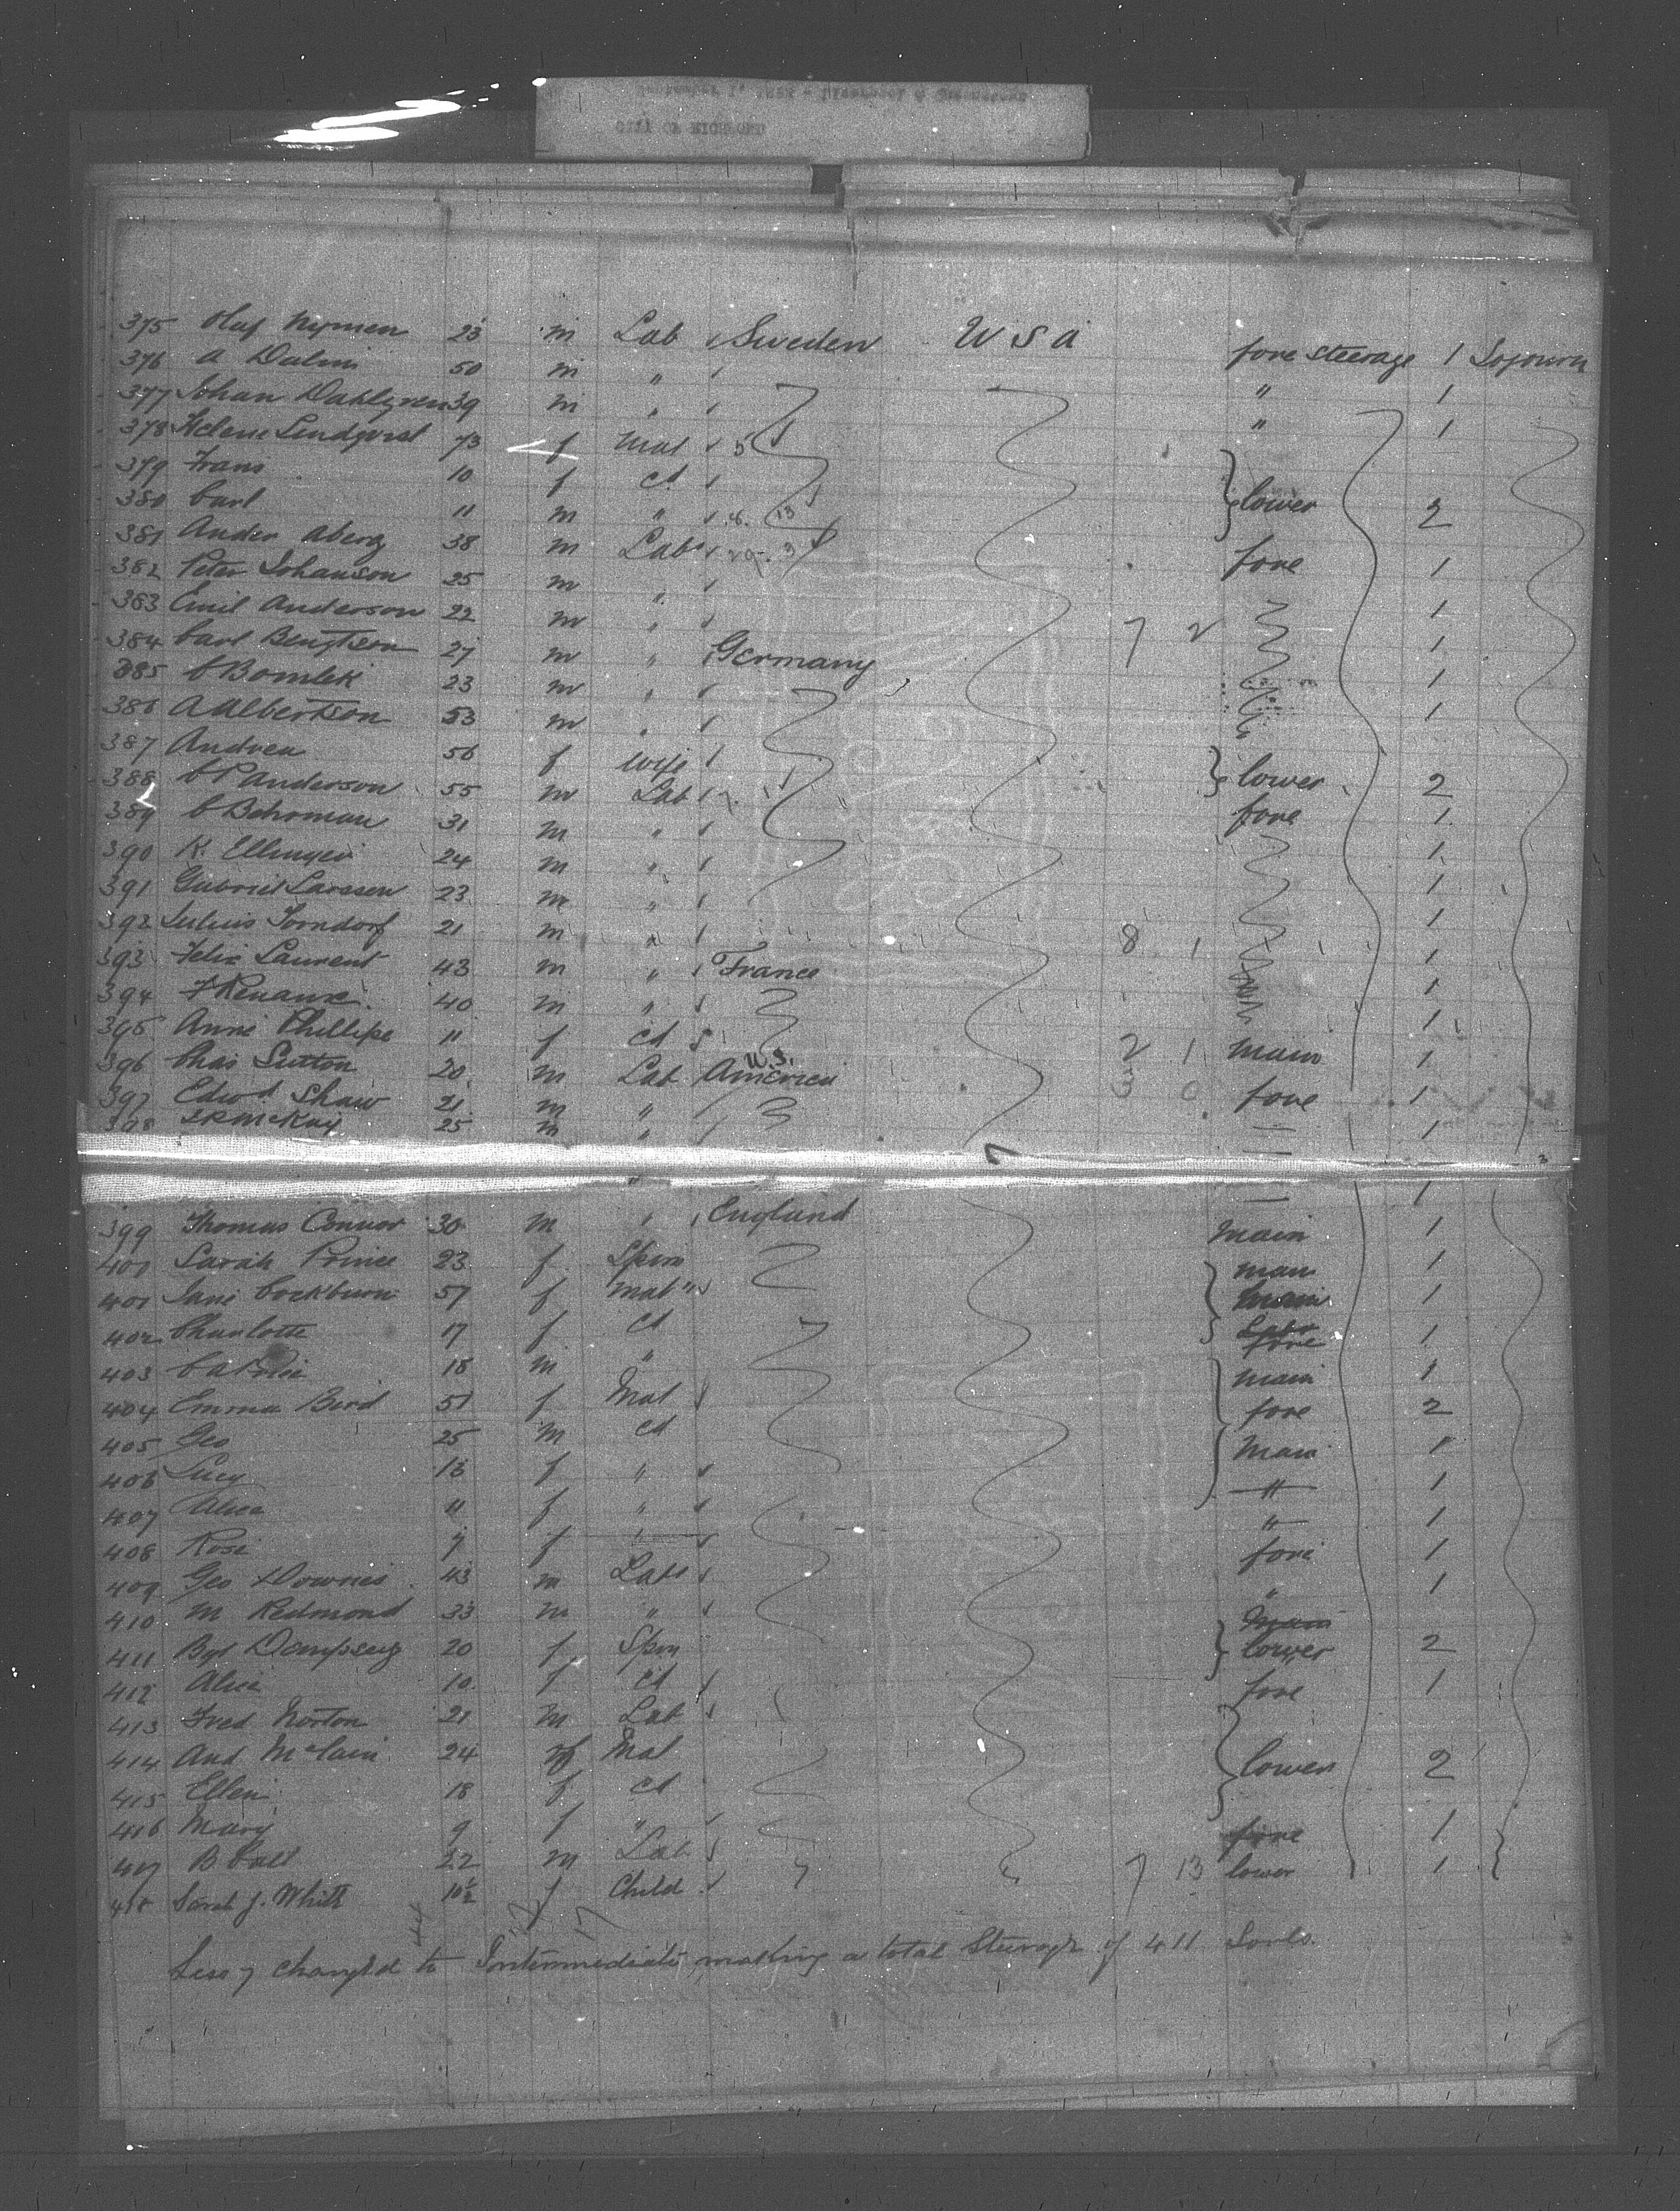 CITY OF RICHMOND
375 Olaf Nymen 23 m Lab Sweden U S A fore steerage 1 Sojourn
376 A Dalin 50 m " " 1
377 Johan Dahlgren 39 m " " 1
378 Helene Lindqvist 73 f Mat 5
379 Frans 10 f cd
380 Carl 11 m " lower 2
381 Ander Aberg 38 m Lab fore 1
382 Peter Johanson 25 m " 1
383 Emil Anderson 22 m " 7 2 1
384 Carl Bengtson 27 m " Germany 1
385 C Bomlek 23 m " 1
386 A Albertson 53 m "
387 Andrea 56 f wife lower 2
388 C P Anderson 55 m Lab fore 1
389 C Behrman 31 m " 1
390 K. Ellinger 24 m " 1
391 Gabriel Larsson 23 m " 1
392 Julius Torndorf 21 m " 8 1 1
393 Felix Laurent 43 m " France 1
394 F 40 m " 1
395 Anne Phillipe 11 f cd 2 1 main 1
396 Chas Sutton 20 m Lab U.S. America fore 1
397 Edwd Shaw 21 m " 1
398 McKay 25 m "
399 Thomas Connor 30 m " England main 1
400 Sarah Prince 23 f Spin main 1
401 Jane Cockburn 57 f Mat 1
402 Charlotte 17 f cd fore 1
403 18 m " main 1
404 Emma Bird 51 f Mat fore 2
405 Geo 25 m cd Main 1
406 Lucy 13 f " " 1
407 Alice 11 f " " 1
408 Rose 7 f " fore 1
409 Geo Downes 43 m Lab " 1
410 M Redmond 33 m " Main
411 Bgt Dempsey 20 f Spin lower 2
412 Alice 10 f cd fore 1
413 Fred Norton 21 m Lab
414 And McCain 24 f Mat lower 2
415 Ellen 18 f cd
416 Mary 9 f " fore 1
417 B Catt 22 m Lab 7 13 lower 1
418 Sarah J. White 10½ f Child
Less 7 changed to Intermediate making a total Steerage of 411 Souls.